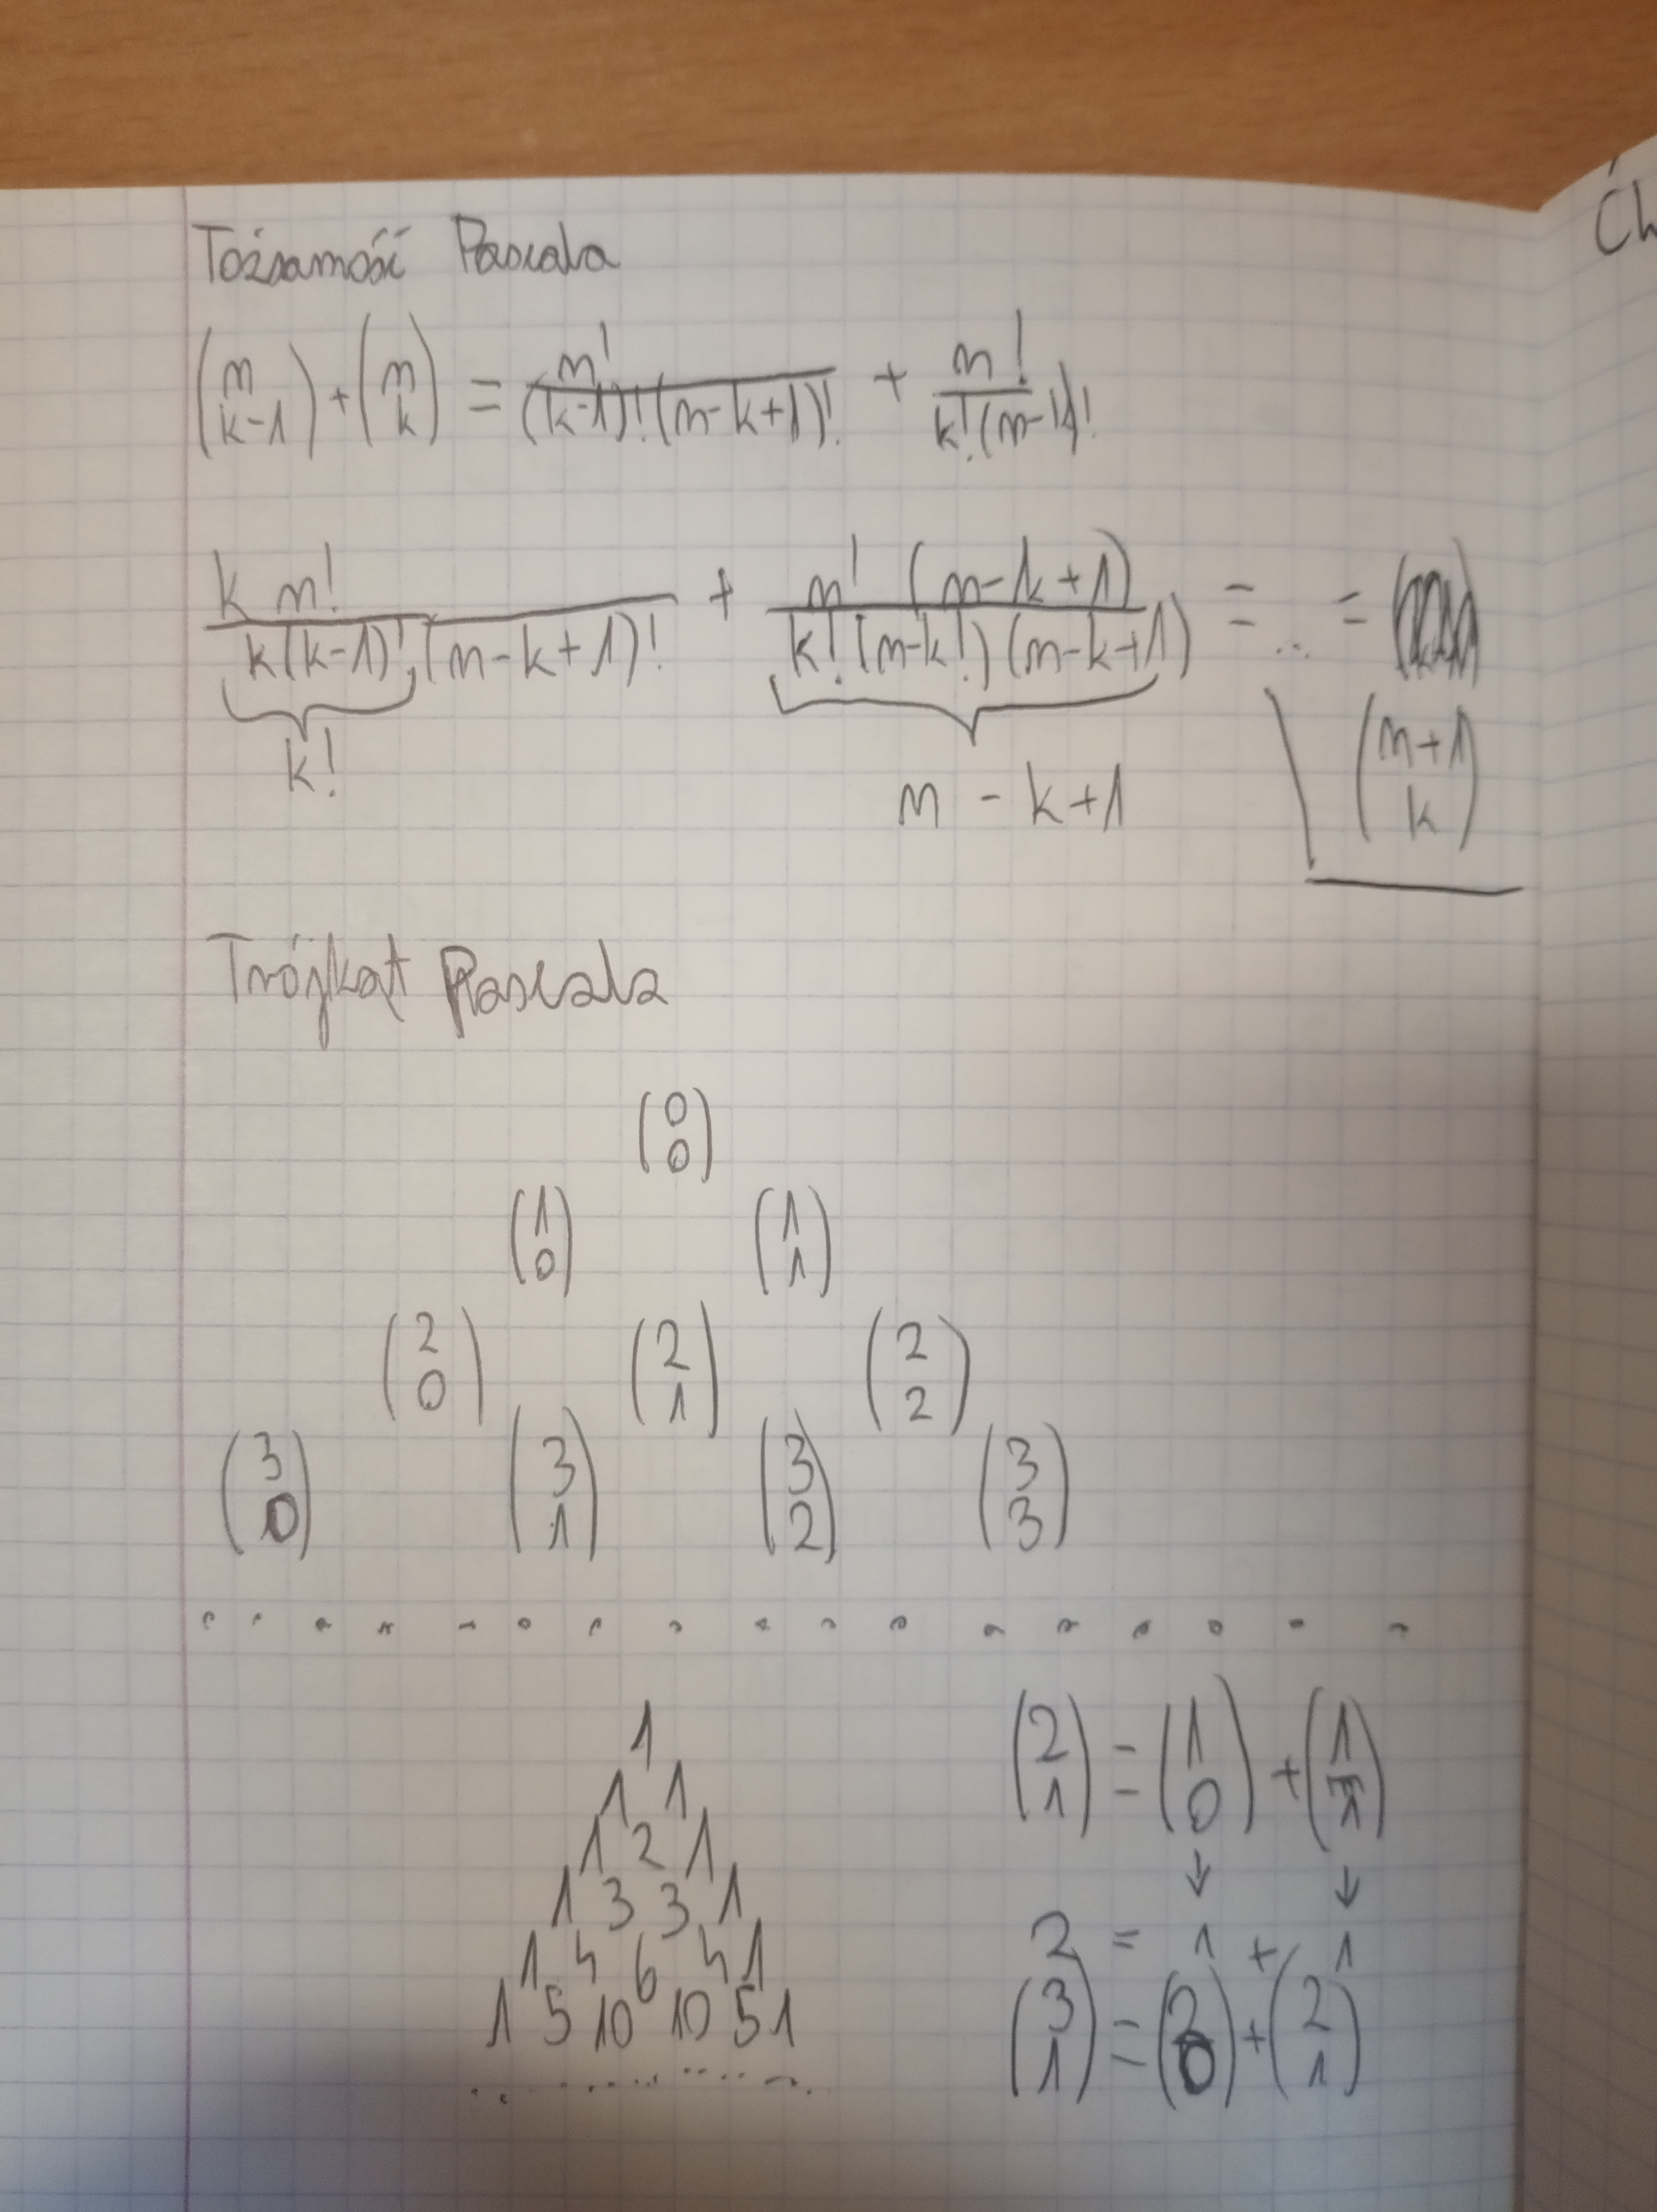 Tożsamość Pascala
(n k-1) + (n k) = n! / (k-1)!(n-k+1)! + n! / k!(n-k)!
k n! / k(k-1)!(n-k+1)! + n! (n-k+1) / k!(n-k!)(n-k+1) = ... =
k!
n - k+1
(n+1 k)
Trójkąt Pascala
(0 0)
(1 0) (1 1)
(2 0) (2 1) (2 2)
(3 0) (3 1) (3 2) (3 3)
1
1 1
1 2 1
1 3 3 1
1 4 6 4 1
1 5 10 10 5 1
(2 1) = (1 0) + (1 1)
↓ ↓
2 = 1 + 1
(3 1) = (2 0) + (2 1)
Ch